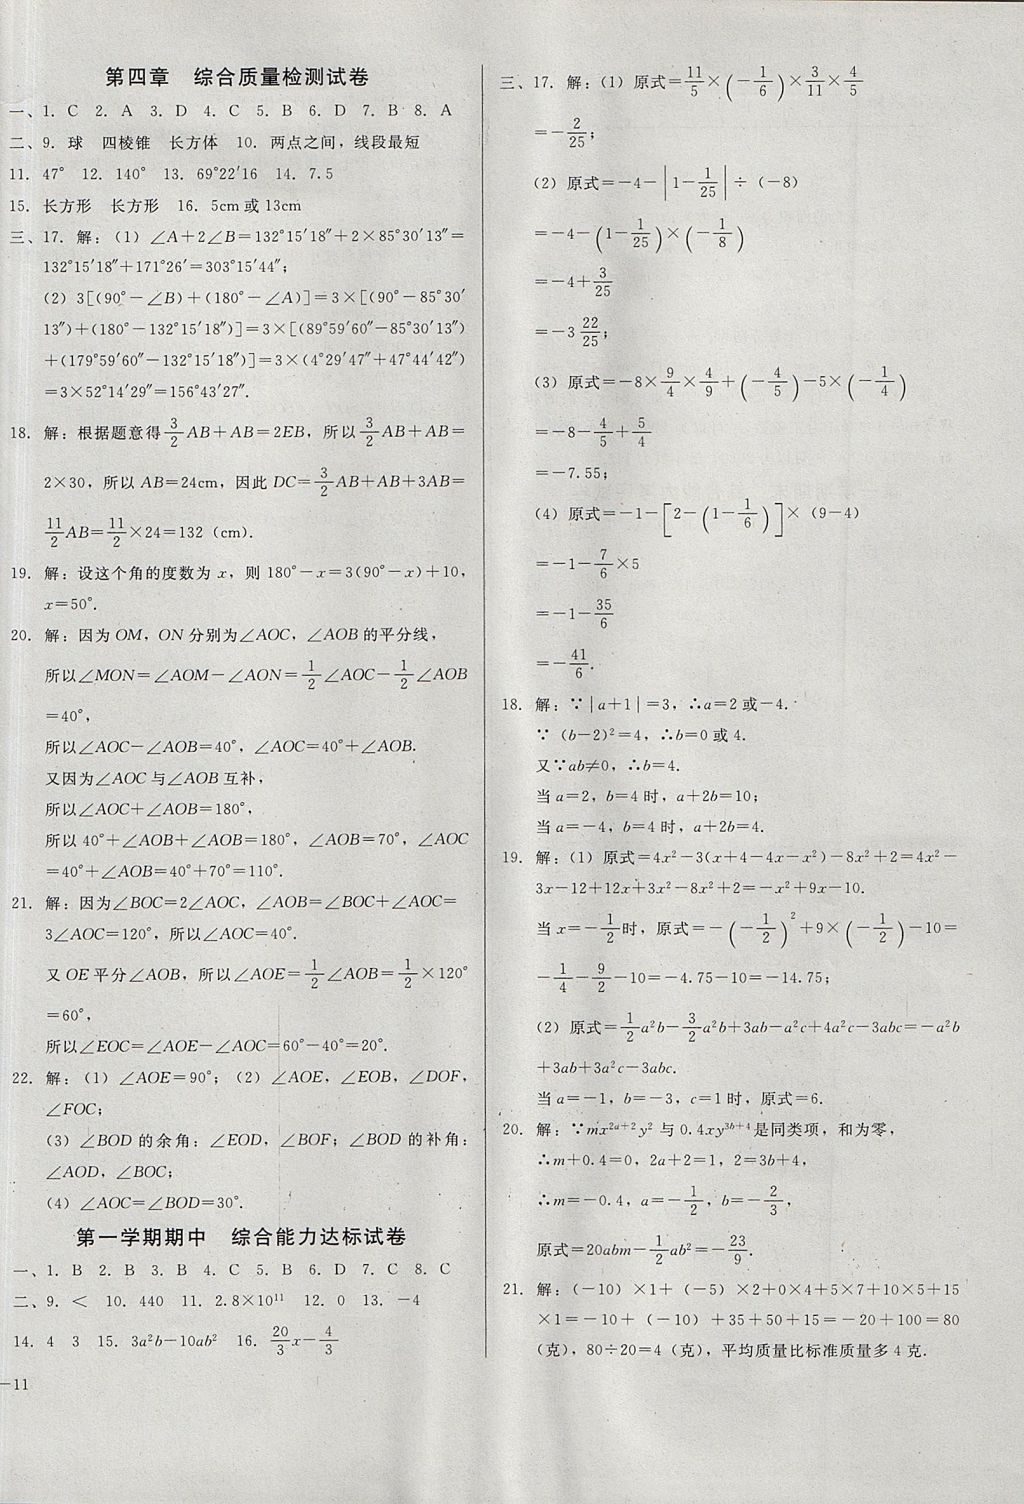 第四章　综合质量检测试卷
一、1. C　2. A　3. D　4. C　5. B　6. D　7. B　8. A
二、9. 球　四棱锥　长方体　10. 两点之间，线段最短
11. 47°　12. 140°　13. 69°22′16　14. 7.5
15. 长方形　长方形　16. 5cm或13cm
三、17. 解：(1) ∠A+2∠B=132°15′18″+2×85°30′13″=
132°15′18″+171°26′=303°15′44″;
(2) 3[(90°-∠B)+(180°-∠A)]=3×[(90°-85°30′
13″)+(180°-132°15′18″)]=3×[(89°59′60″-85°30′13″)
+(179°59′60″-132°15′18″)]=3×(4°29′47″+47°44′42″)
=3×52°14′29″=156°43′27″.
18. 解：根据题意得3/2AB+AB=2EB，所以3/2AB+AB=
2×30，所以AB=24cm，因此DC=3/2AB+AB+3AB=
11/2AB=11/2×24=132 (cm).
19. 解：设这个角的度数为x，则180°-x=3(90°-x)+10，
x=50°.
20. 解：因为OM，ON分别为∠AOC，∠AOB的平分线，
所以∠MON=∠AOM-∠AON=1/2∠AOC-1/2∠AOB
=40°，
所以∠AOC-∠AOB=40°，∠AOC=40°+∠AOB.
又因为∠AOC与∠AOB互补，
所以∠AOC+∠AOB=180°，
所以40°+∠AOB+∠AOB=180°，∠AOB=70°，∠AOC
=40°+∠AOB=40°+70°=110°.
21. 解：因为∠BOC=2∠AOC，∠AOB=∠BOC+∠AOC=
3∠AOC=120°，所以∠AOC=40°.
又OE平分∠AOB，所以∠AOE=1/2∠AOB=1/2×120°
=60°，
所以∠EOC=∠AOE-∠AOC=60°-40°=20°.
22. 解：(1) ∠AOE=90°；(2) ∠AOE，∠EOB，∠DOF，
∠FOC；
(3) ∠BOD的余角：∠EOD，∠BOF；∠BOD的补角：
∠AOD，∠BOC；
(4) ∠AOC=∠BOD=30°.
第一学期期中　综合能力达标试卷
一、1. B　2. B　3. B　4. C　5. B　6. D　7. C　8. C
二、9. <　10. 440　11. 2.8×10¹¹　12. 0　13. -4
14. 4　3　15. 3a²b-10ab²　16. 20/3x-4/3
-11
三、17. 解：(1) 原式=11/5×(-1/6)×3/11×4/5
=-2/25;
(2) 原式=-4-|1-1/25|÷(-8)
=-4-(1-1/25)×(-1/8)
=-4+3/25
=-3 22/25;
(3) 原式=-8×9/4×4/9+(-4/5)-5×(-1/4)
=-8-4/5+5/4
=-7.55;
(4) 原式=-1-[2-(1-1/6)]×(9-4)
=-1-7/6×5
=-1-35/6
=-41/6.
18. 解：∵|a+1|=3，∴a=2或-4.
∵(b-2)²=4，∴b=0或4.
又∵ab≠0，∴b=4.
当a=2，b=4时，a+2b=10;
当a=-4，b=4时，a+2b=4.
19. 解：(1) 原式=4x²-3(x+4-4x-x²)-8x²+2=4x²-
3x-12+12x+3x²-8x²+2=-x²+9x-10.
当x=-1/2时，原式=-(-1/2)²+9×(-1/2)-10=
-1/4-9/2-10=-4.75-10=-14.75;
(2) 原式=1/2a²b-3/2a²b+3ab-a²c+4a²c-3abc=-a²b
+3ab+3a²c-3abc.
当a=-1，b=-3，c=1时，原式=6.
20. 解：∵mx²ᵃ⁺²y²与0.4xy³ᵇ⁺⁴是同类项，和为零，
∴m+0.4=0，2a+2=1，2=3b+4，
∴m=-0.4，a=-1/2，b=-2/3，
原式=20abm-1/2ab²=-23/9.
21. 解：(-10)×1+(-5)×2+0×4+5×7+10×5+15
×1=-10+(-10)+35+50+15=-20+100=80
(克)，80÷20=4 (克)，平均质量比标准质量多4克.